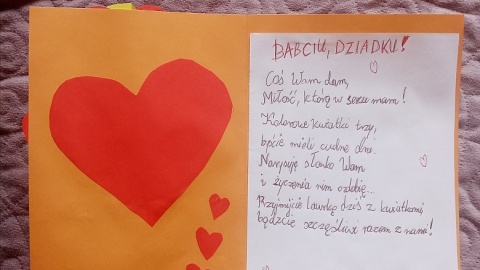 BABCIU, DZIADKU!
Coś Wam dam,
Miłość, którą w sercu mam!
Kolorowe kwiatki trzy,
byście mieli cudne dni.
Narysuję słonko Wam
i życzenia nim ozdobię...
Przyjmijcie laurkę dziś z kwiatkami
bądźcie szczęśliwi razem z nami!